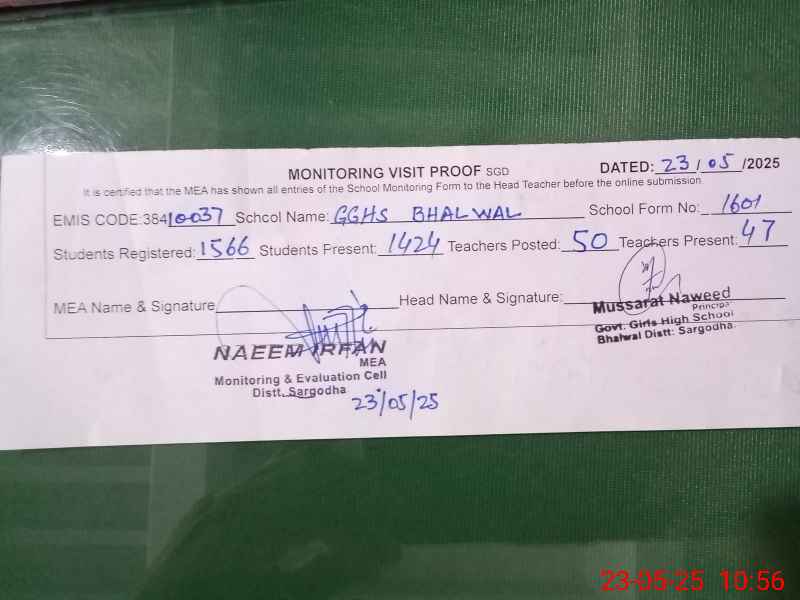 MONITORING VISIT PROOF SGD DATED: 23/05/2025
It is certified that the MEA has shown all entries of the School Monitoring Form to the Head Teacher before the online submission.
EMIS CODE:38410037 School Name: GGHS BHALWAL School Form No: 1601
Students Registered: 1566 Students Present: 1424 Teachers Posted: 50 Teachers Present: 47
MEA Name & Signature Head Name & Signature:
Mussarat Naweed
Principal
Govt. Girls High School
Bhalwal Distt: Sargodha.
NAEEM IRFAN
MEA
Monitoring & Evaluation Cell
Distt. Sargodha
23/05/25
23-05-25 10:56